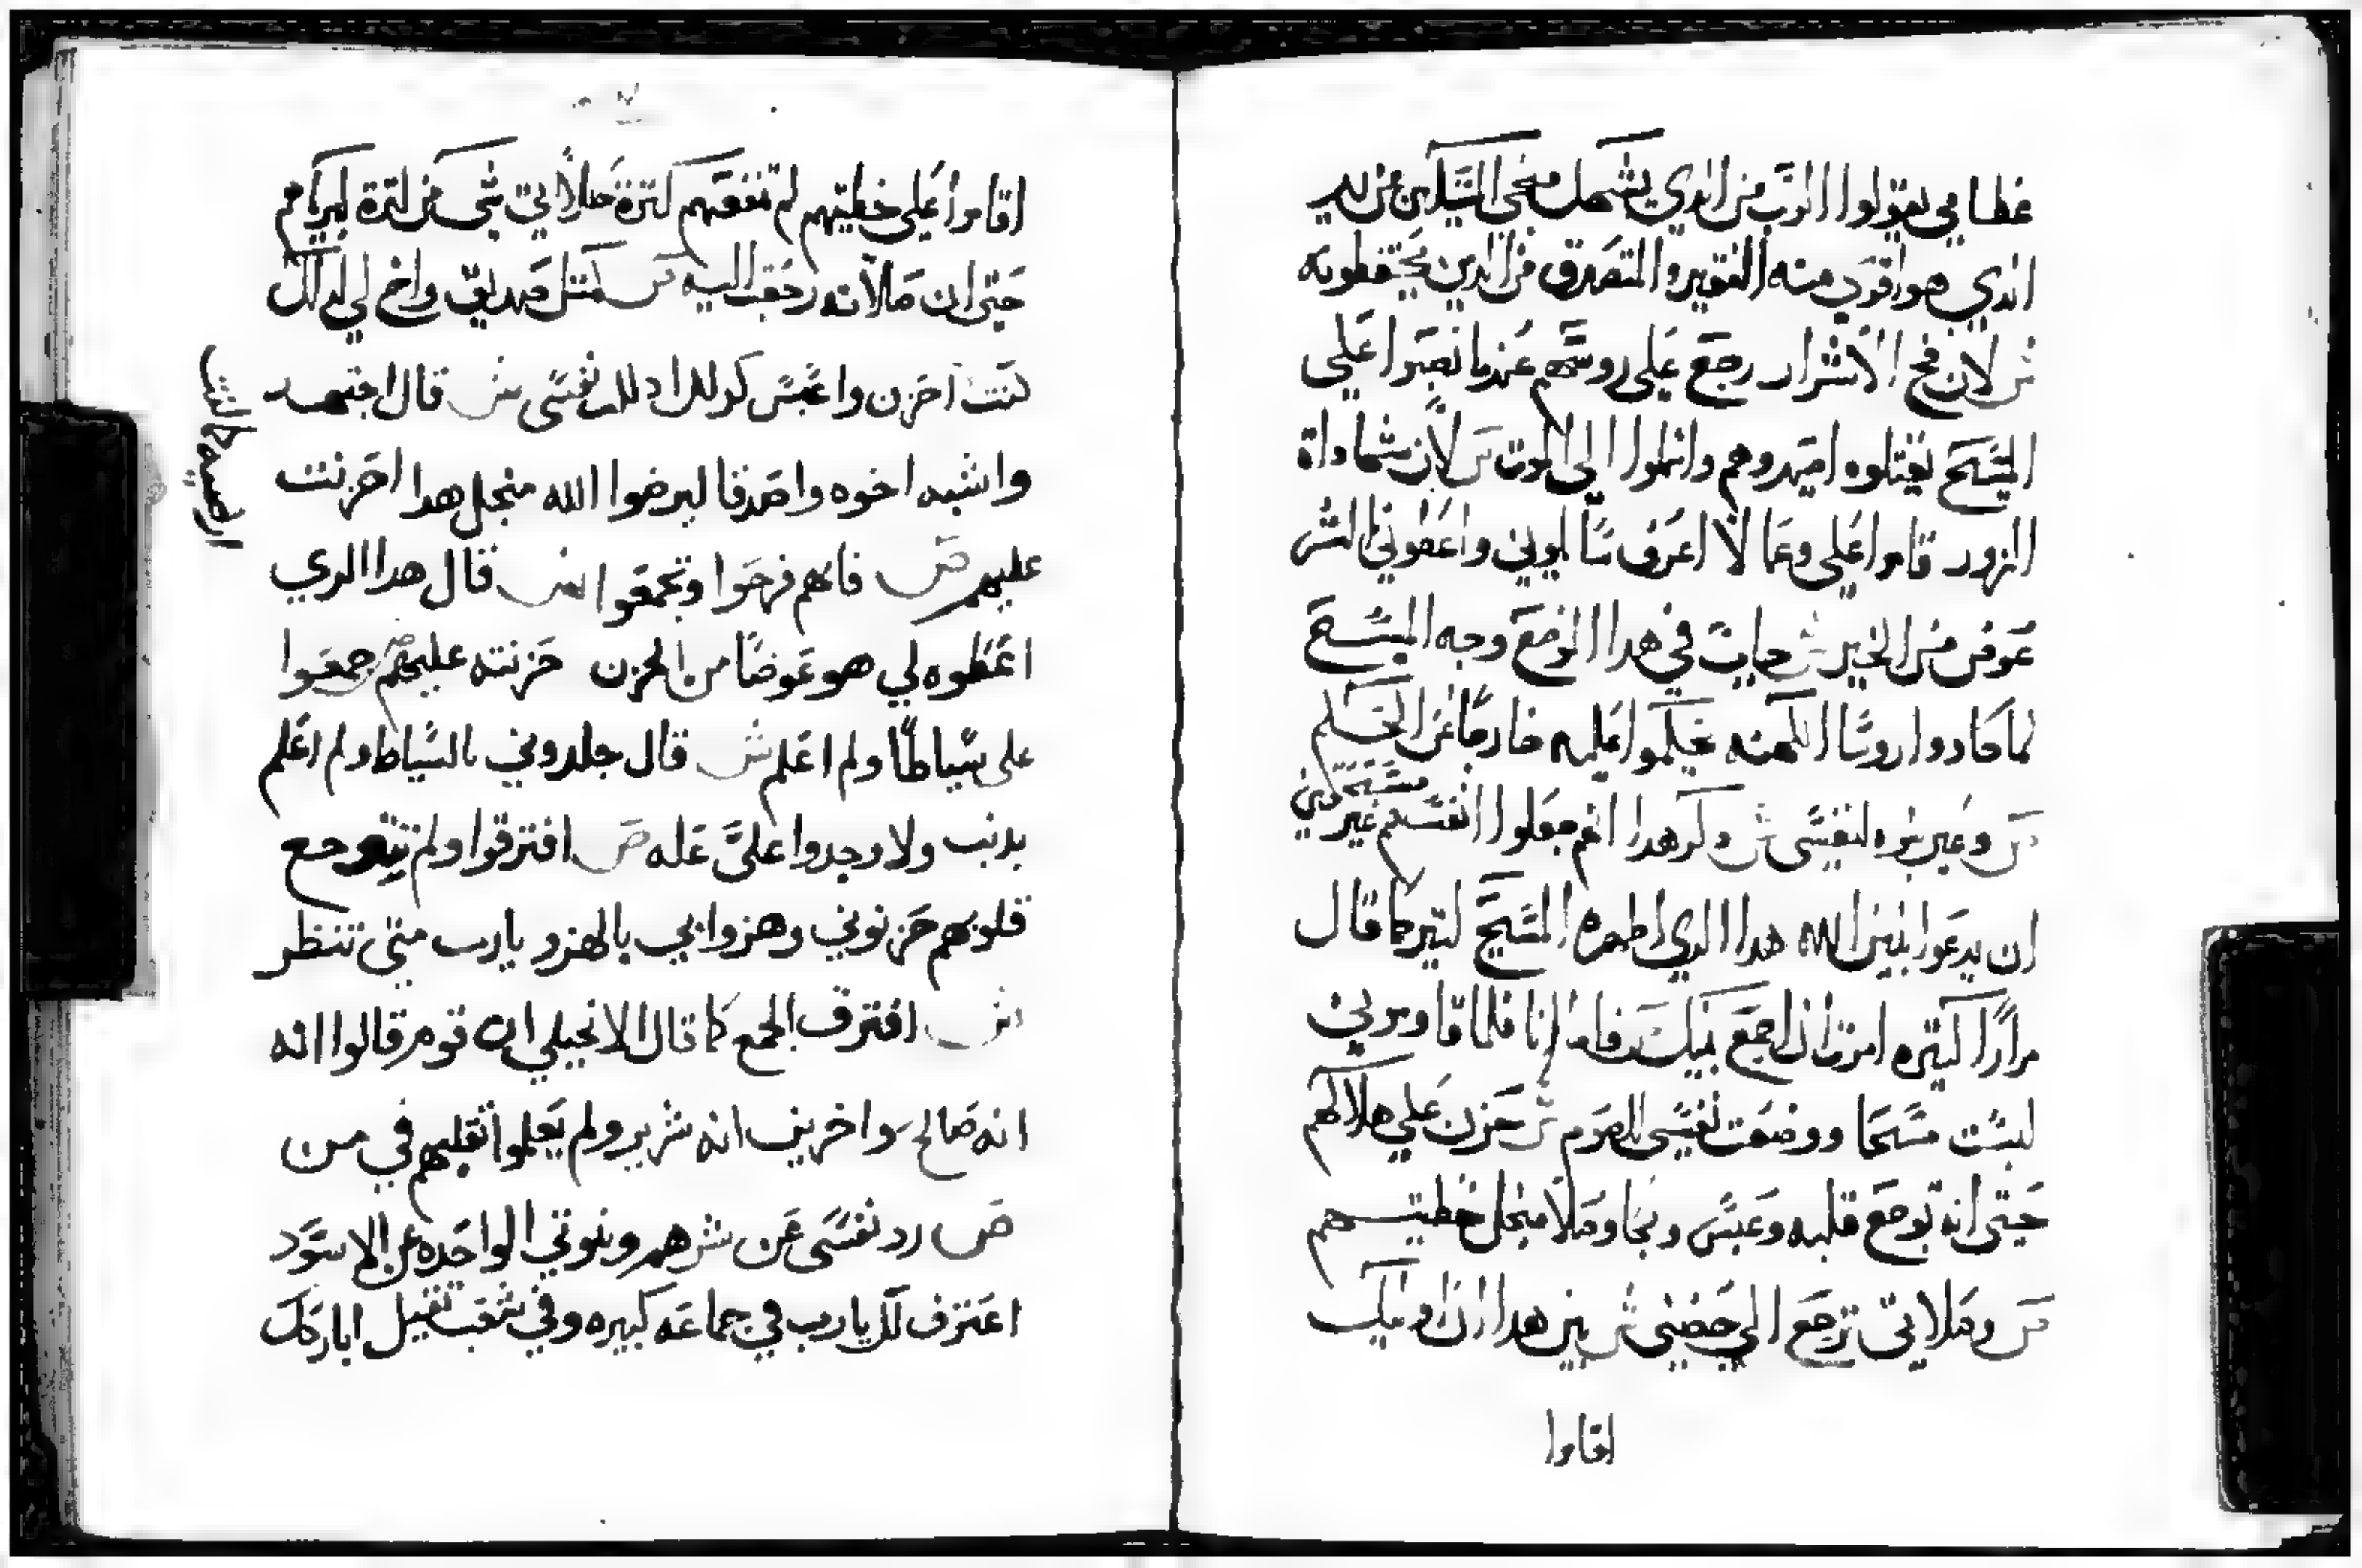 عظامي يقولوا الرب من الذي يشبهك منجي المسكين من يد
الذي هو اقوي منه الفقير والمتصدق من الذين يختطفونه
ش لان فخ الاشرار رجع علي روسهم عندما تعصبوا علي
المسيح ليقتلوه اميهروهم واتلموا الي الموت ص لان شهادة
الزور قاموا علي وعما لا اعرف سالوني واعطوني الشر
عوض من الخير ش جابت في هدا الموضع وجه المسيح
لما كادوا روسا الكهنه تحكموا عليه خارجا عن الحكم
ص وغير بنوه لنفسي ش وذكر هدا انهم جعلوا انفسهم غير مستحقين
ان يدعوا بنين الله هدا الذي اظهره المسيح لتيركا قال
مرارا كتيره امرت ان اجمع بنيك ص فاما انا فلما قاوموني
لبست مسحا ووضعت نفسي بالصوم ش حزن علي هلاكهم
حتي انه توجع قلبه وعبس وبكا وصلا منجل خطيتهم
ص وصلاتي ترجع الي حضني ش من هدا ان اوليك
اقاموا
اقاموا علي خطيتهم لم تنفعهم كترة صلاتي شي من كترة كبرياهم
حتي ان صلاته رجعت اليه ص كمتل صديق واخ لي كدلك
كنت احزن واعبس كدلك ادللت نفسي ش قال اجتهد
واشبه اخوه واصدقا ليرضوا الله منجل هدا احزنت
عليهم ص فانهم فرحوا وتجمعوا ش قال هدا الدي
اعطوه لي هو عوضا من الحزن حزنته عليهم ص جمعوا
علي سياطا ولم اعلم ش قال جلدوني بالسياط ولم اعلم
بدنب ولا وجدوا علي عله ص افترقوا ولم تتوجع
قلوبهم حزنوني وهزوا بي بالهزو يارب متي تنظر
ش افترق الجمع كما قال الانجيلي ان قوم قالوا انه
انه صالح واخرين انه شرير ولم يعلموا تقلبهم في من
ص رد نفسي عن شرهم وبنوتي الواحده عن الاسود
اعترف لك يارب في جماعه كبيره وفي شعب تقيل اباركك